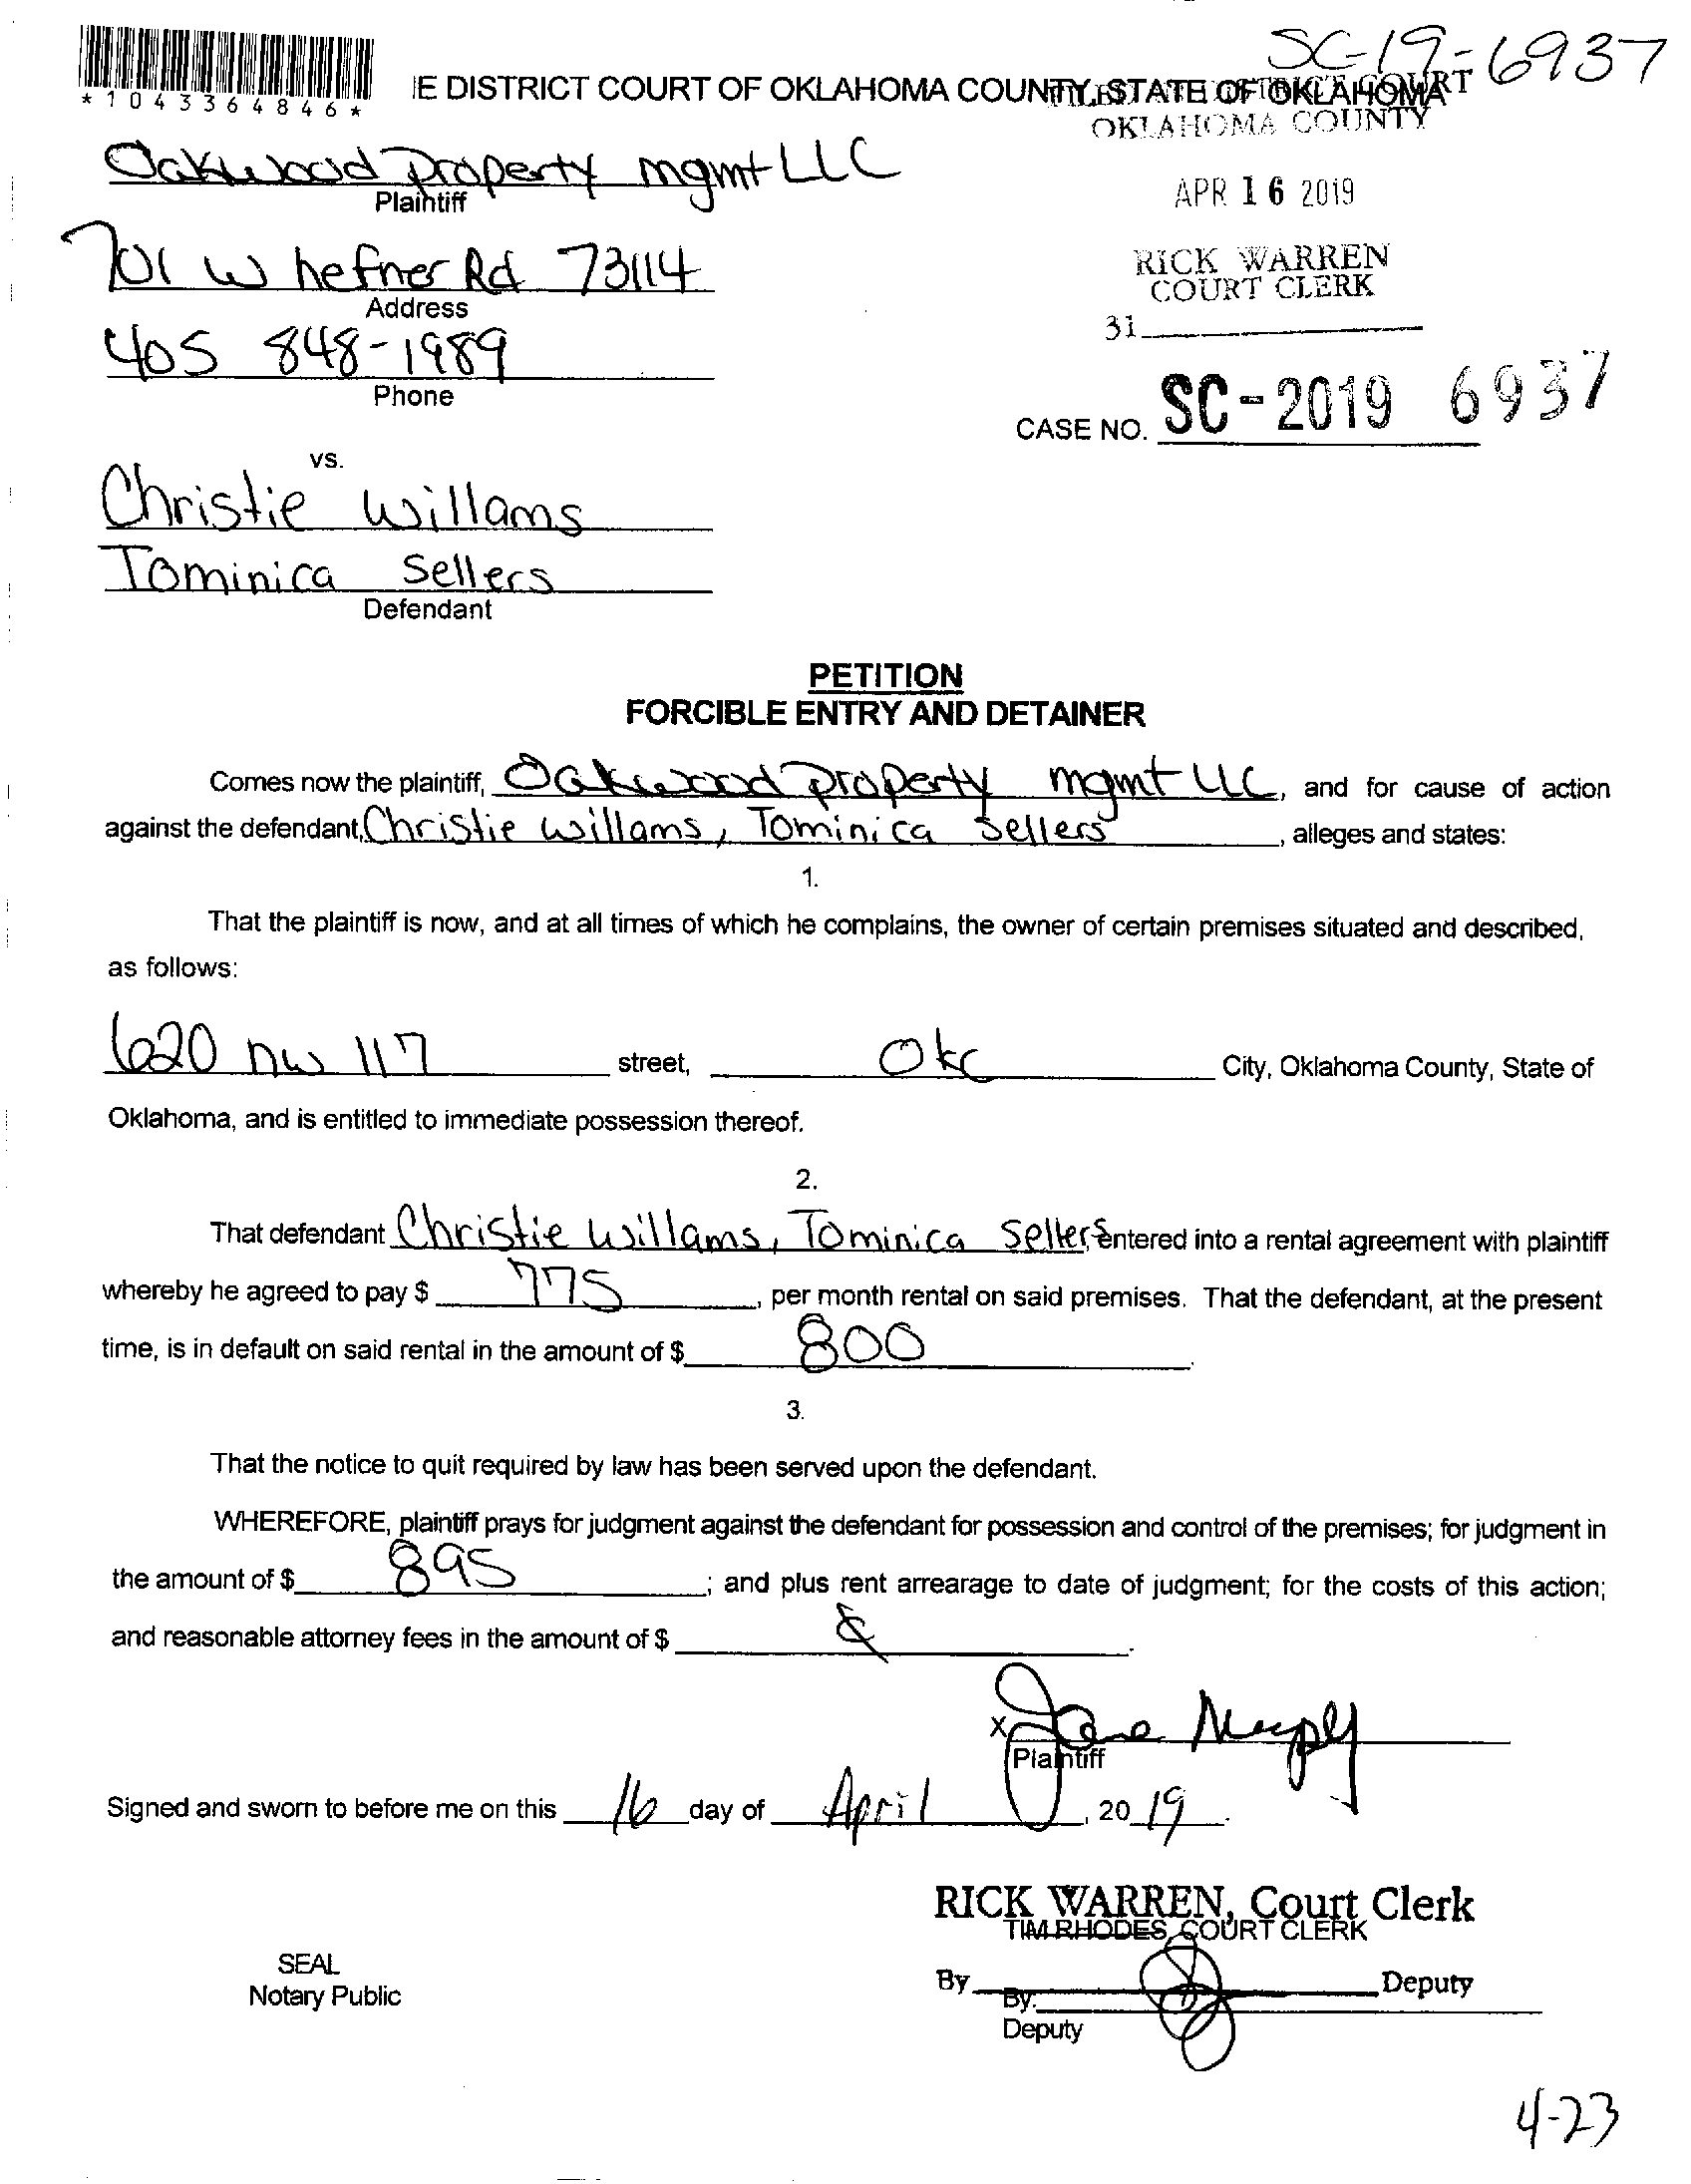 SC-19-6937
*1043364846*
E DISTRICT COURT OF OKLAHOMA COUNTY, STATE OF OKLAHOMA
COURT
OKLAHOMA COUNTY
Oakwood Property mgmt LLC
Plaintiff
APR 16 2019
701 W hefner Rd 73114
Address
RICK WARREN
COURT CLERK
31
405 848-1989
Phone
CASE NO. SC-2019 6937
vs.
Christie Willams
Tominica Sellers
Defendant
PETITION
FORCIBLE ENTRY AND DETAINER
Comes now the plaintiff, Oakwood property mgmt LLC, and for cause of action
against the defendant, Christie Willams, Tominica Sellers, alleges and states:
1.
That the plaintiff is now, and at all times of which he complains, the owner of certain premises situated and described,
as follows:
620 nw 117 street, Okc City, Oklahoma County, State of
Oklahoma, and is entitled to immediate possession thereof.
2.
That defendant Christie Willams, Tominica Sellers entered into a rental agreement with plaintiff
whereby he agreed to pay $ 775, per month rental on said premises. That the defendant, at the present
time, is in default on said rental in the amount of $ 800.
3.
That the notice to quit required by law has been served upon the defendant.
WHEREFORE, plaintiff prays for judgment against the defendant for possession and control of the premises; for judgment in
the amount of $ 895; and plus rent arrearage to date of judgment; for the costs of this action;
and reasonable attorney fees in the amount of $ .
x
Plaintiff
Signed and sworn to before me on this 16 day of April, 20 19.
RICK WARREN, Court Clerk
TIM RHODES, COURT CLERK
SEAL
Notary Public
By Deputy
By:
Deputy
4-23